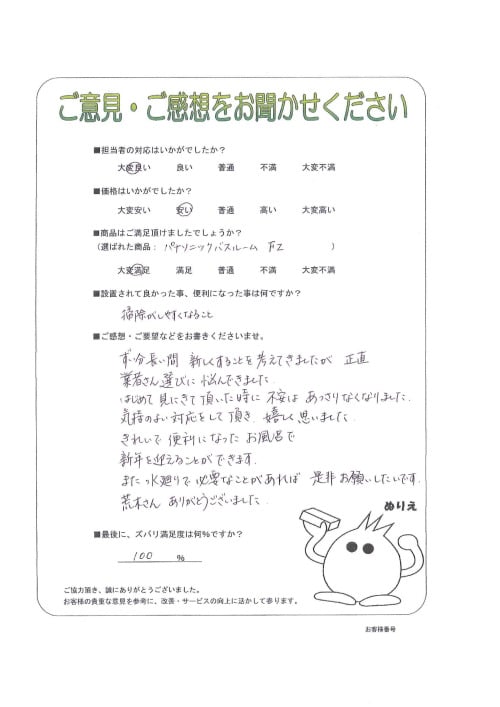 ご意見・ご感想をお聞かせください
■担当者の対応はいかがでしたか？
大変良い 良い 普通 不満 大変不満
■価格はいかがでしたか？
大変安い 安い 普通 高い 大変高い
■商品はご満足頂けましたでしょうか？
（選ばれた商品： パナソニックバスルーム ）
大変満足 満足 普通 不満 大変不満
■設置されて良かった事、便利になった事は何ですか？
掃除がしやすくなること
■ご感想・ご要望などをお書きくださいませ。
ずい分長い間 新しくすることを考えてきましたが 正直
業者さん選びに悩んできました.
はじめて見にきて頂いた時に 不安は あっさりなくなりました.
気持のよい対応をして頂き、嬉しく思いました.
きれいで 便利になった お風呂で
新年を迎えることができます.
また 水廻りで必要なことがあれば 是非お願いしたいです.
荒木さん ありがとうございました.
■最後に、ズバリ満足度は何％ですか？
100 ％
ぬりえ
ご協力頂き、誠にありがとうございました。
お客様の貴重な意見を参考に、改善・サービスの向上に活かして参ります。
お客様番号